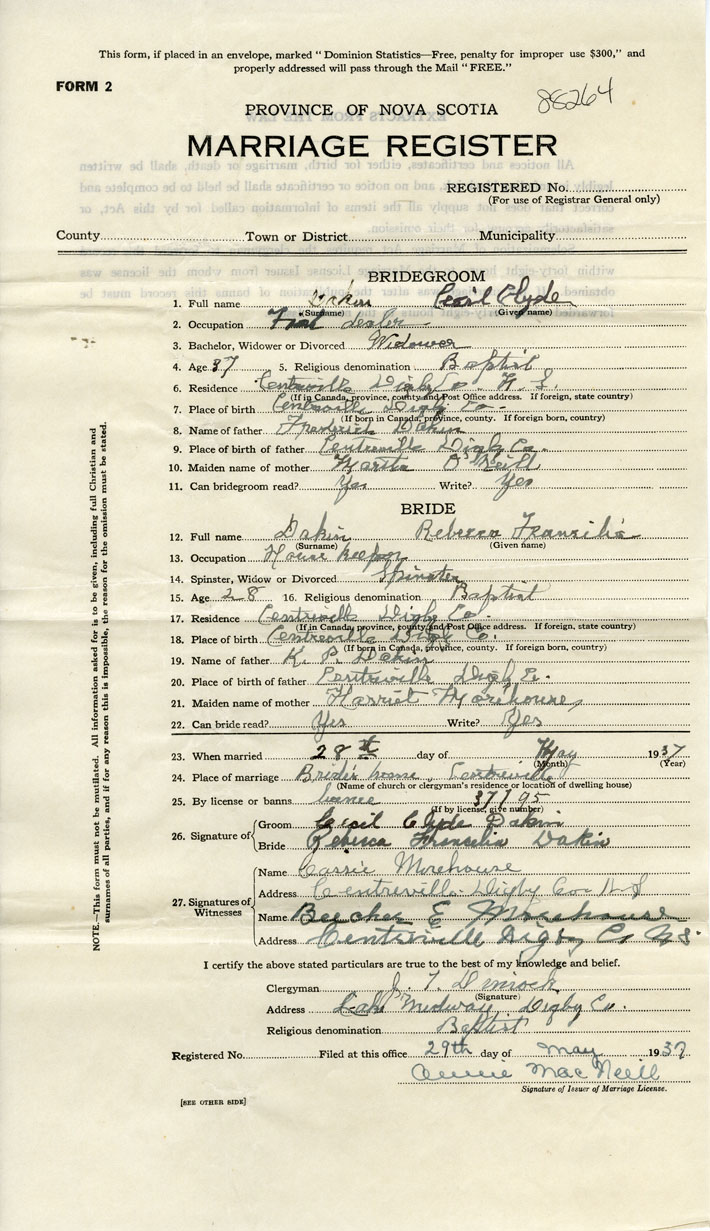 This form, if placed in an envelope, marked "Dominion Statistics—Free, penalty for improper use $300," and
properly addressed will pass through the Mail "FREE."
FORM 2
88264
PROVINCE OF NOVA SCOTIA
MARRIAGE REGISTER
REGISTERED No.
(For use of Registrar General only)
County Town or District Municipality
BRIDEGROOM
1. Full name Dakin Cecil Clyde
(Surname) (Given name)
2. Occupation dealer
3. Bachelor, Widower or Divorced Widower
4. Age 37 5. Religious denomination Baptist
6. Residence Centreville Digby Co. N. S.
(If in Canada, province, county and Post Office address. If foreign, state country)
7. Place of birth Centreville Digby Co.
(If born in Canada, province, county. If foreign born, country)
8. Name of father Frederick Dakin
9. Place of birth of father Centreville Digby Co.
10. Maiden name of mother Martha O'Neill
11. Can bridegroom read? Yes Write? Yes
BRIDE
12. Full name Dakin Rebecca
(Surname) (Given name)
13. Occupation House keeper
14. Spinster, Widow or Divorced Spinster
15. Age 28 16. Religious denomination Baptist
17. Residence Centreville Digby Co.
(If in Canada, province, county and Post Office address. If foreign, state country)
18. Place of birth Centreville Digby Co.
(If born in Canada, province, county. If foreign born, country)
19. Name of father K. P. Dakin
20. Place of birth of father Centreville Digby
21. Maiden name of mother Harriet Morehouse
22. Can bride read? Yes Write? Yes
23. When married 28th day of May 1937
(Month) (Year)
24. Place of marriage Bride's home, Centreville
(Name of church or clergyman's residence or location of dwelling house)
25. By license or banns 37195
(If by license, give number)
26. Signature of Groom Cecil Clyde Dakin
Bride Rebecca Dakin
27. Signatures of Witnesses
Name Cassie Morehouse
Address Centreville Digby Co. N.S
Name Beecher E Morehouse
Address Centreville Digby Co N.S.
I certify the above stated particulars are true to the best of my knowledge and belief.
Clergyman J. T. Dimock
(Signature)
Address Lake Midway, Digby Co.
Religious denomination Baptist
Registered No. Filed at this office 29th day of may 1937
Annie MacNeill
Signature of Issuer of Marriage License.
[SEE OTHER SIDE]
NOTE.—This form must not be mutilated. All information asked for is to be given, including full Christian and
surnames of all parties, and if for any reason this is impossible, the reason for the omission must be stated.